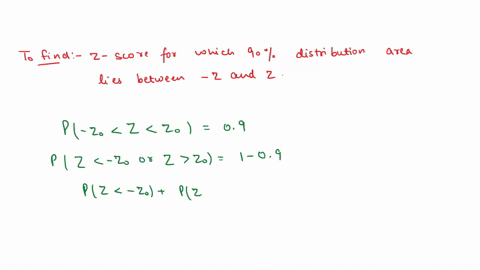 To find:- Z-score for which 90% distribution area
lies between -z and z.
P(-z₀ < Z < z₀) = 0.9
P( Z < -z₀ or Z > z₀) = 1-0.9
P(Z < -z₀) + P(Z